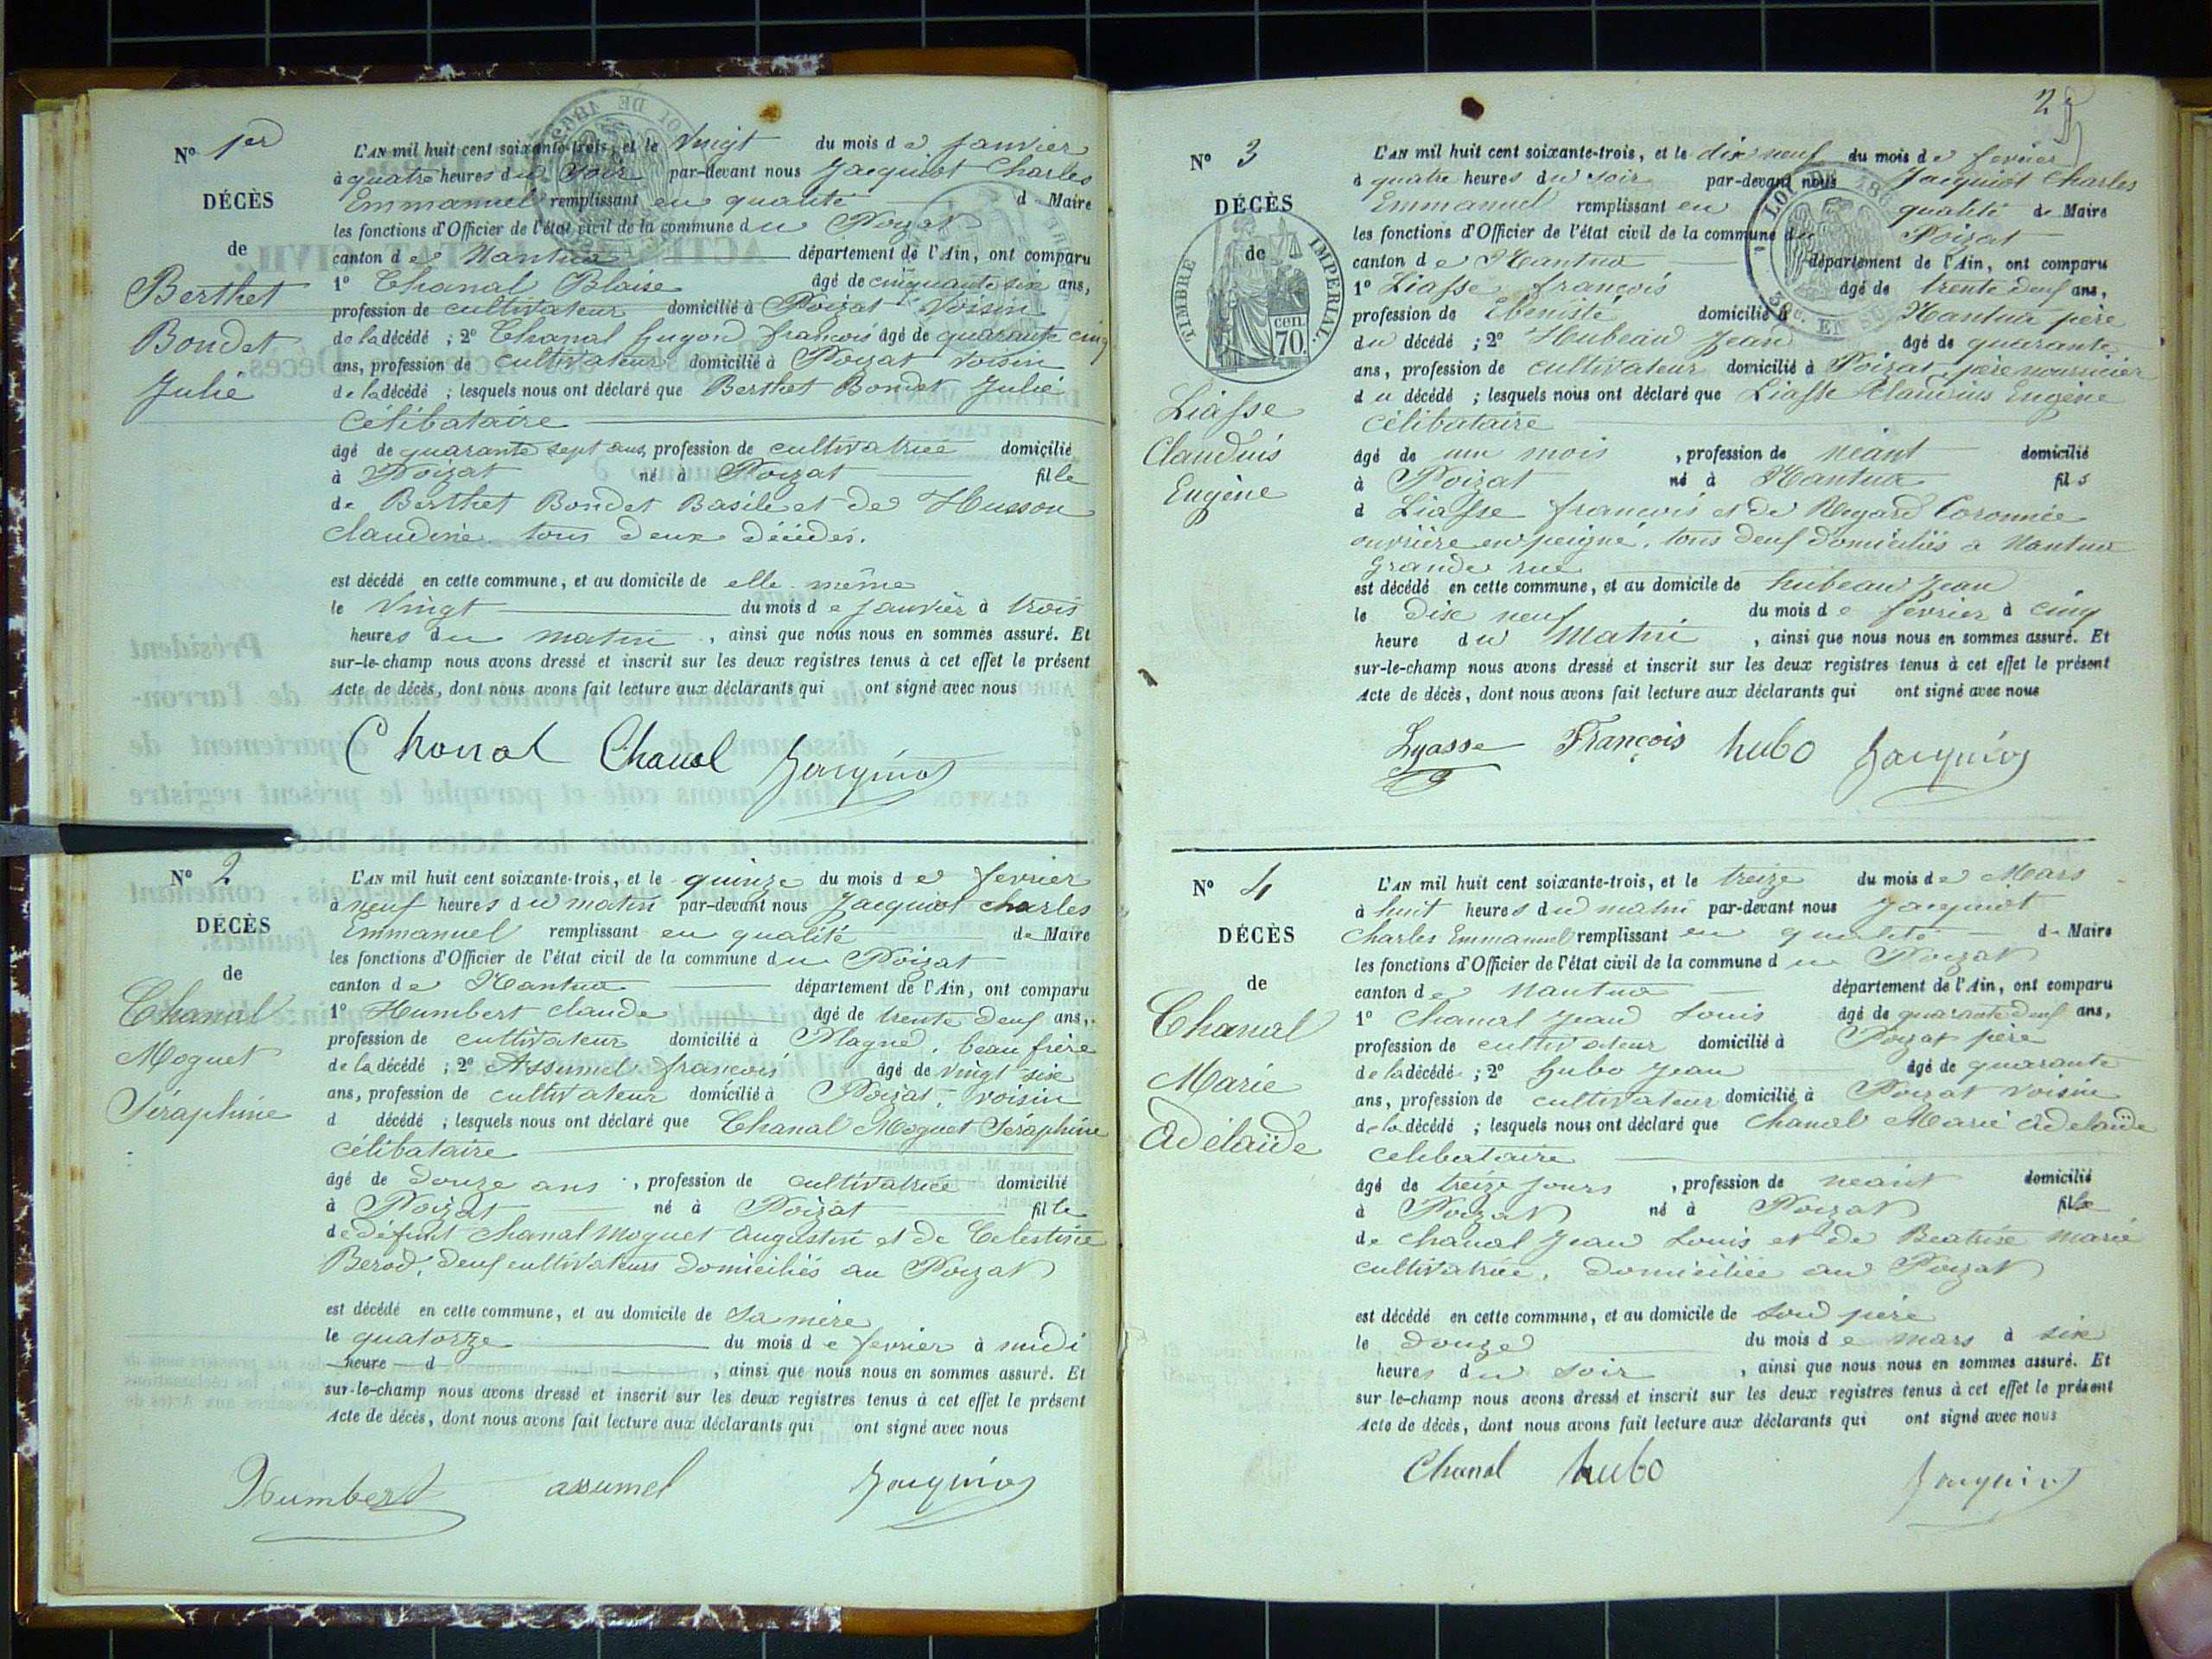 N° 1er
DÉCÈS
de
Berthet
Bondet
Julie
L'AN mil huit cent soixante-trois, et le Vingt du mois de janvier
à quatre heures du Soir par-devant nous Jacquiot Charles
Emmanuel remplissant en qualité d Maire
les fonctions d'Officier de l'état civil de la commune du Poizat
canton de Nantua département de l'Ain, ont comparu
1° Chanal Blaise âgé de cinquante six ans,
profession de cultivateur domicilié à Poizat voisin
de la décédé ; 2° Chanal hugon françois âgé de quarante cinq
ans, profession de cultivateur domicilié à Poizat voisin
de la décédé ; lesquels nous ont déclaré que Berthet Bondet Julie
célibataire
âgé de quarante sept ans, profession de cultivatrice domicilié
à Poizat né à Poizat fille
de Berthet Bondet Basile et de Husson
claudine tous deux décédés.
est décédé en cette commune, et au domicile de elle même
le Vingt du mois de janvier à trois
heures du matin, ainsi que nous nous en sommes assuré. Et
sur-le-champ nous avons dressé et inscrit sur les deux registres tenus à cet effet le présent
Acte de décès, dont nous avons fait lecture aux déclarants qui ont signé avec nous
Chanal Chanal Jacquiot
N° 2
DÉCÈS
de
Chanal
Moguet
Séraphine
L'AN mil huit cent soixante-trois, et le quinze du mois de fevrier
à neuf heures du matin par-devant nous Jacquiot charles
Emmanuel remplissant en qualité de Maire
les fonctions d'Officier de l'état civil de la commune du Poizat
canton de Nantua département de l'Ain, ont comparu
1° Humbert claude âgé de trente deux ans,
profession de cultivateur domicilié à Plagne, beau frère
de la décédé ; 2° Assumel françois âgé de vingt six
ans, profession de cultivateur domicilié à Poizat, voisin
d décédé ; lesquels nous ont déclaré que Chanal Moguet Séraphine
célibataire
âgé de douze ans, profession de cultivatrice domicilié
à Poizat né à Poizat fille
de défunt chanal moguet augustin et de Celestine
Berod, deux cultivateurs domiciliés au Poizat
est décédé en cette commune, et au domicile de sa mère
le quatorze du mois de fevrier à midi
heure d , ainsi que nous nous en sommes assuré. Et
sur-le-champ nous avons dressé et inscrit sur les deux registres tenus à cet effet le présent
Acte de décès, dont nous avons fait lecture aux déclarants qui ont signé avec nous
Humbert assumel Jacquiot
2
N° 3
DÉCÈS
de
TIMBRE IMPÉRIAL
cen. 70.
Liasse
Claudius
Eugène
L'AN mil huit cent soixante-trois, et le dix neuf du mois de fevrier
à quatre heures du soir par-devant nous Jacquiot Charles
Emmanuel remplissant en qualité de Maire
les fonctions d'Officier de l'état civil de la commune du Poizat
canton de Nantua département de l'Ain, ont comparu
1° Liasse françois âgé de trente deux ans,
profession de Ebeniste domicilié à Nantua père
du décédé ; 2° Hubeau Jean âgé de quarante
ans, profession de cultivateur domicilié à Poizat, père nourricier
du décédé ; lesquels nous ont déclaré que Liasse Claudius Eugène
célibataire
âgé de un mois, profession de néant domicilié
à Poizat né à Nantua fils
d Liasse françois et de Regard Coronnée
ouvrière en peigne, tous deux domiciliés à Nantua
grande rue
est décédé en cette commune, et au domicile de hubeau Jean
le dix neuf du mois de février à cinq
heure du Matin, ainsi que nous nous en sommes assuré. Et
sur-le-champ nous avons dressé et inscrit sur les deux registres tenus à cet effet le présent
Acte de décès, dont nous avons fait lecture aux déclarants qui ont signé avec nous
Lyasse François hubo Jacquiot
N° 4
DÉCÈS
de
Chanal
Marie
Adélaïde
L'AN mil huit cent soixante-trois, et le treize du mois de Mars
à huit heures du matin par-devant nous Jacquiot
Charles Emmanuel remplissant en qualité de Maire
les fonctions d'Officier de l'état civil de la commune du Poizat
canton de Nantua département de l'Ain, ont comparu
1° Chanal Jean Louis âgé de quarante deux ans,
profession de cultivateur domicilié à Poizat père
de la décédé ; 2° hubo Jean âgé de quarante
ans, profession de cultivateur domicilié à Poizat voisin
de la décédé ; lesquels nous ont déclaré que Chanal Marie Adelaïde
célibataire
âgé de treize jours, profession de néant domicilié
à Poizat né à Poizat fille
de Chanal Jean Louis et de Beatrise marie
cultivatrice, domiciliée au Poizat
est décédé en cette commune, et au domicile de son père
le Douze du mois de mars à six
heures du soir, ainsi que nous nous en sommes assuré. Et
sur-le-champ nous avons dressé et inscrit sur les deux registres tenus à cet effet le présent
Acte de décès, dont nous avons fait lecture aux déclarants qui ont signé avec nous
Chanal hubo Jacquiot